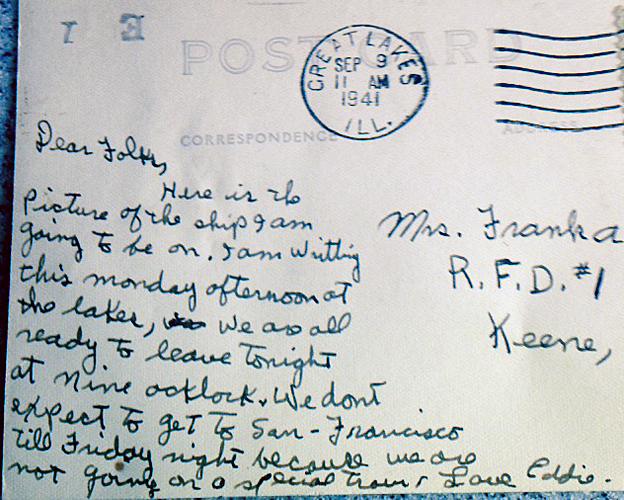 POST CARD
GREAT LAKES
SEP 9
11 AM
1941
ILL.
CORRESPONDENCE
ADDRESS
Dear Folks,
Here is the
picture of the ship I am
going to be on. I am writting
this monday afternoon at
the lakes, we are all
ready to leave tonight
at nine ocklock. We dont
expect to get to San-Francisco
till Friday night because we are
not going on a special train. Love Eddie.
Mrs. Frank a
R.F.D. #1
Keene,